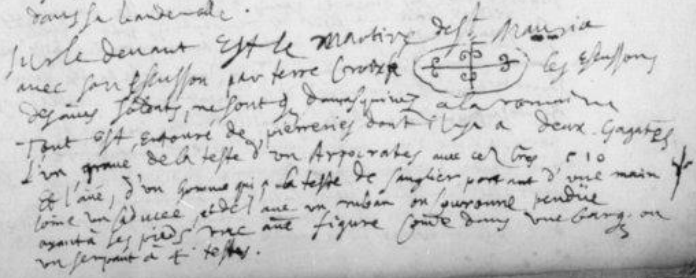 dans sa banderolle.
sur le devant Est le Martire de St Mauria
avec son Escusson par terre Croix les Escussons
des aues soldats, ne sont q damasquinez a la romaine
Tout Est Entouré de pierreries dont il y a deux Gagates
L'vn graué de la teste d'vn Arpocrates auec ces Lres
Et l'aue, d'vn homme qui a la teste de sanglier portant d'vne main
come vn caducee, et de l'aue vn ruban ou couronne pendüe
ayant à ses pieds vne aue figure come dans vne barq. ou
vn serpant à testes.